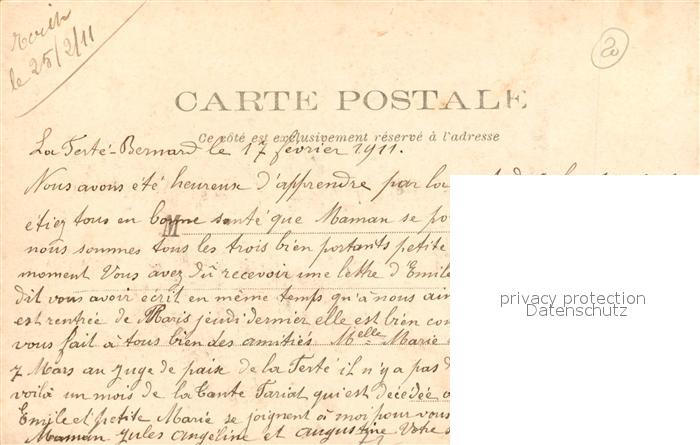 le 25/2/11
20
CARTE POSTALE
Ce côté est exclusivement réservé à l'adresse
La Ferté-Bernard le 17 février 1911.
Nous avons été heureux d'apprendre par la
étiez tous en bonne santé que Maman se
M
nous sommes tous les trois bien portants petite
moment Vous avez dû recevoir une lettre d'Emile
dit vous avoir écrit en même temps qu'à nous
est rentrée de Paris jeudi dernier elle est bien
vous fait à tous bien des amitiés Melle Marie
7 Mars au Juge de paix de la Ferté il n'y a pas
voilà un mois de la Tante Tariat qui est décédée
Emile et petite Marie se joignent à moi pour vous
Maman Jules Angéline et Augustine Votre
privacy protection
Datenschutz